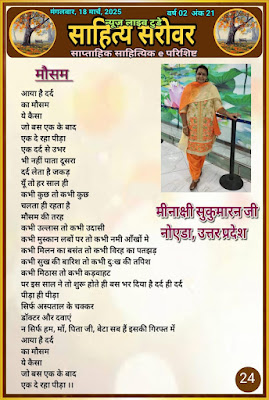 मंगलवार, 18 मार्च, 2025
न्यूज लाइव टुडे
वर्ष 02 अंक 21
साहित्य सरोवर
साप्ताहिक साहित्यिक e परिशिष्ट
मौसम
आया है दर्द
का मौसम
ये कैसा
जो बस एक के बाद
एक दे रहा पीड़ा
एक दर्द से उभर
भी नहीं पाता दूसरा
दर्द लेता है जकड़
यूँ तो हर साल ही
कभी कुछ तो कभी कुछ
चलता ही रहता है
मौसम की तरह
कभी उल्लास तो कभी उदासी
कभी मुस्कान लबों पर तो कभी नमी आँखों मे
कभी मिलन का बसंत तो कभी विरह का पतझड़
कभी सुख की बारिश तो कभी दुःख की तपिश
कभी मिठास तो कभी कड़वाहट
पर इस साल ने तो शुरू होते ही बस भर दिया है दर्द ही दर्द
पीड़ा ही पीड़ा
सिर्फ अस्पताल के चक्कर
डॉक्टर और दवाएं
न सिर्फ हम, माँ, पिता जी, बेटा सब हैं इसकी गिरफ्त में
आया है दर्द
का मौसम
ये कैसा
जो बस एक के बाद
एक दे रहा पीड़ा ।।
मीनाक्षी सुकुमारन जी
नोएडा, उत्तर प्रदेश
24